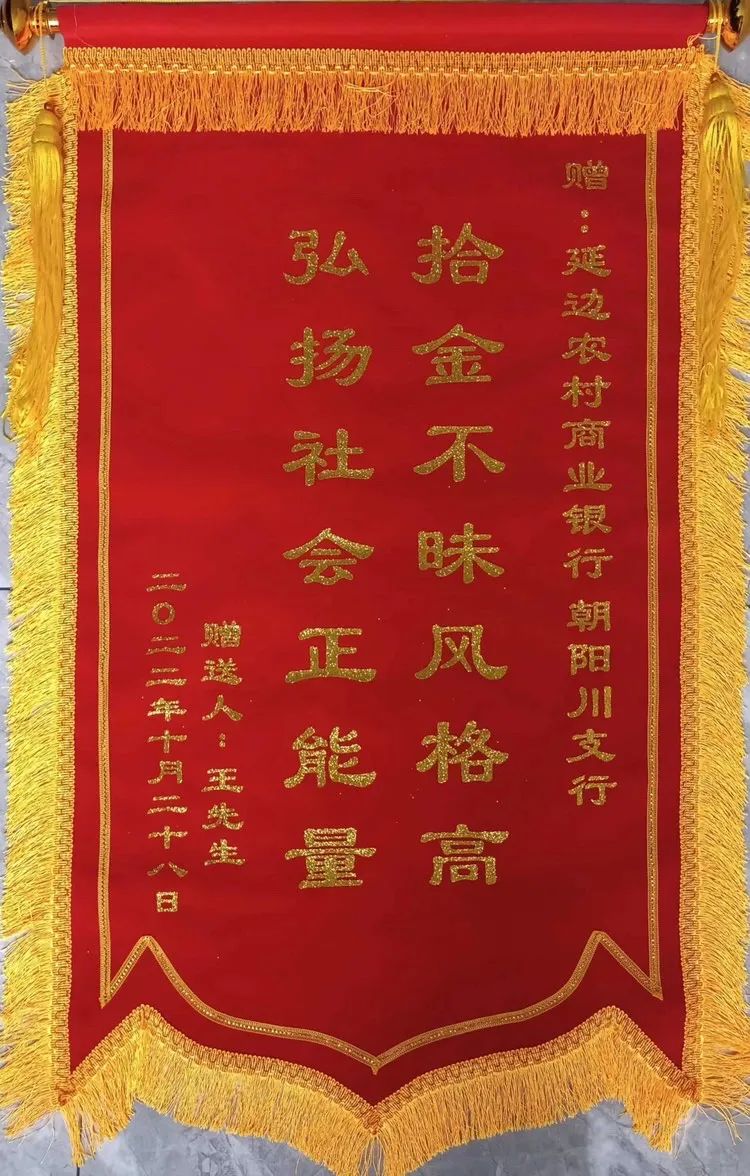 赠：延边农村商业银行 朝阳川支行
拾金不昧风格高
弘扬社会正能量
赠送人：王先生
二〇二二年十月二十八日